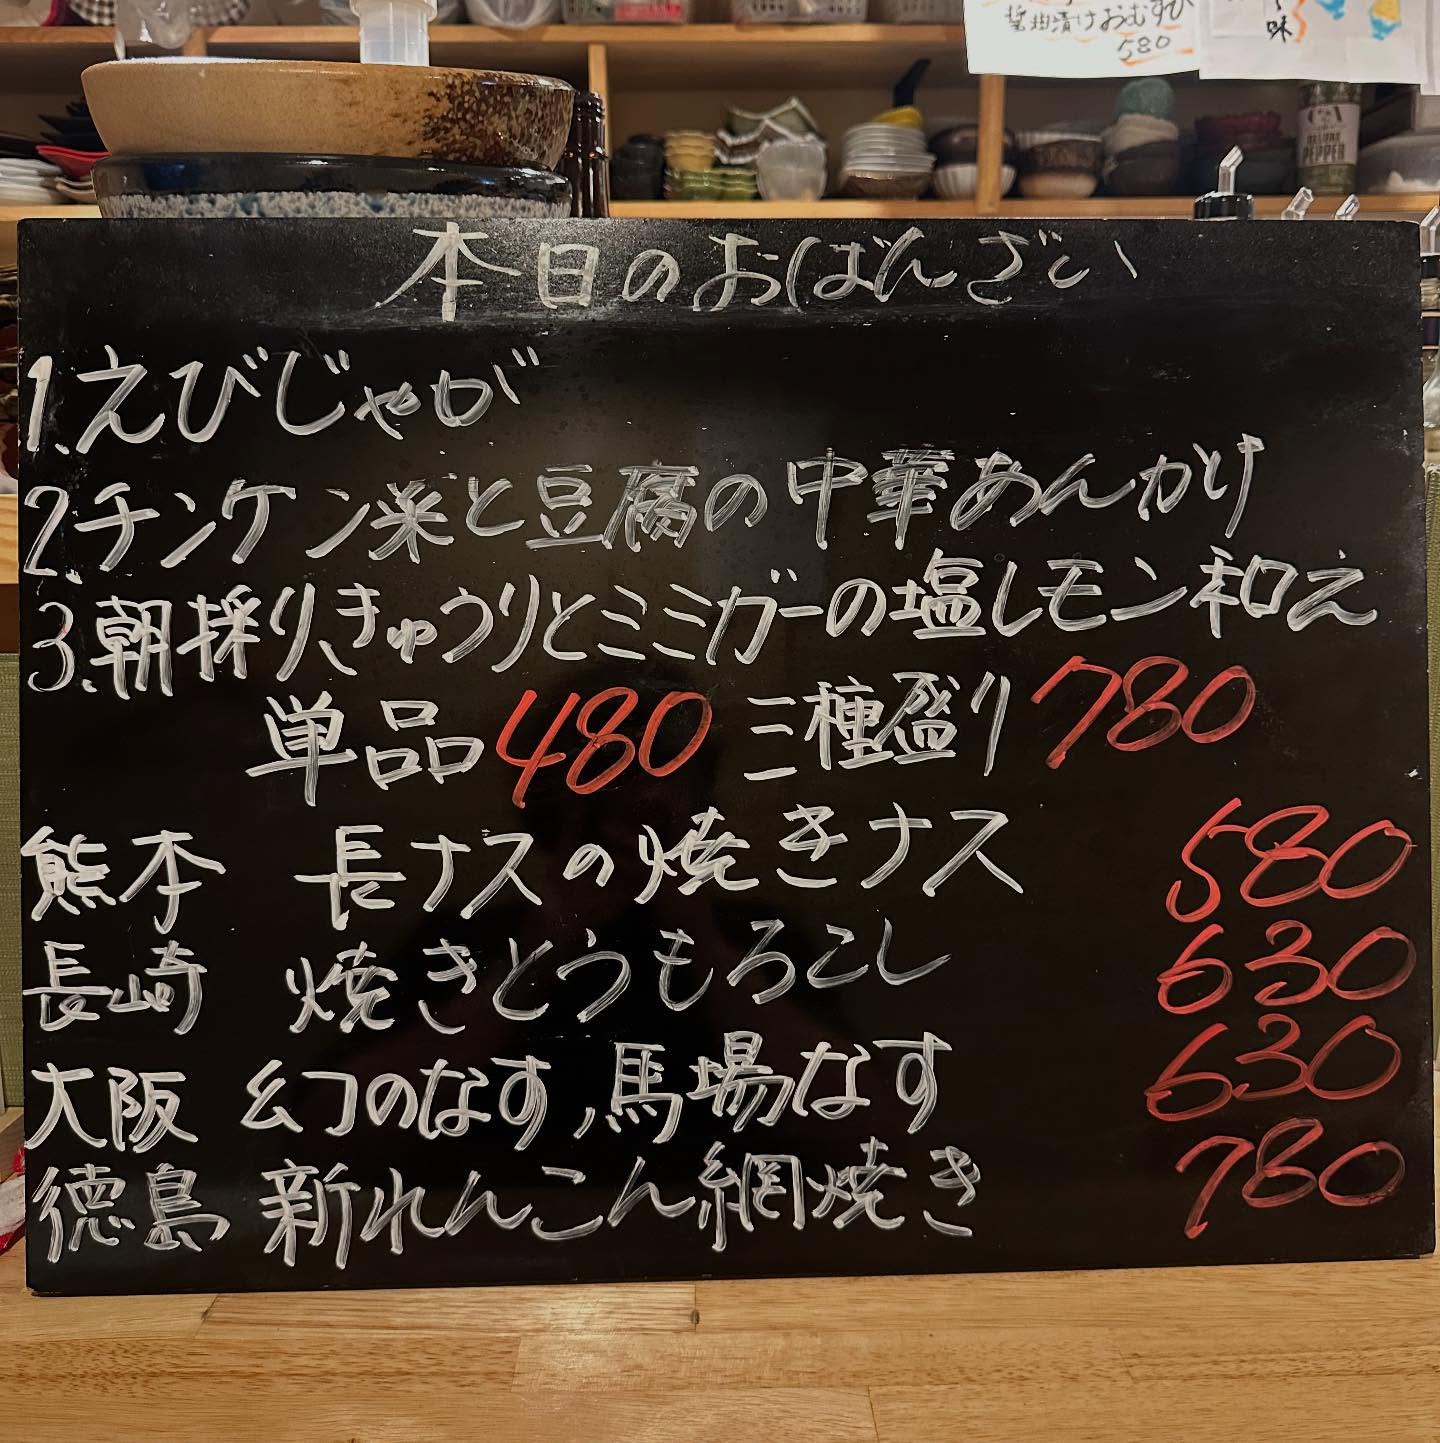 醤油漬けおむすび
580
味
PEPPER
本日のおばんざい
1.えびじゃが
2.チンゲン菜と豆腐の中華あんかけ
3.朝採りきゅうりとミミガーの塩レモン和え
単品480 三種盛り780
熊本 長ナスの焼きナス 580
長崎 焼きとうもろこし 630
大阪 幻のなす、馬場なす 630
徳島 新れんこん網焼き 780